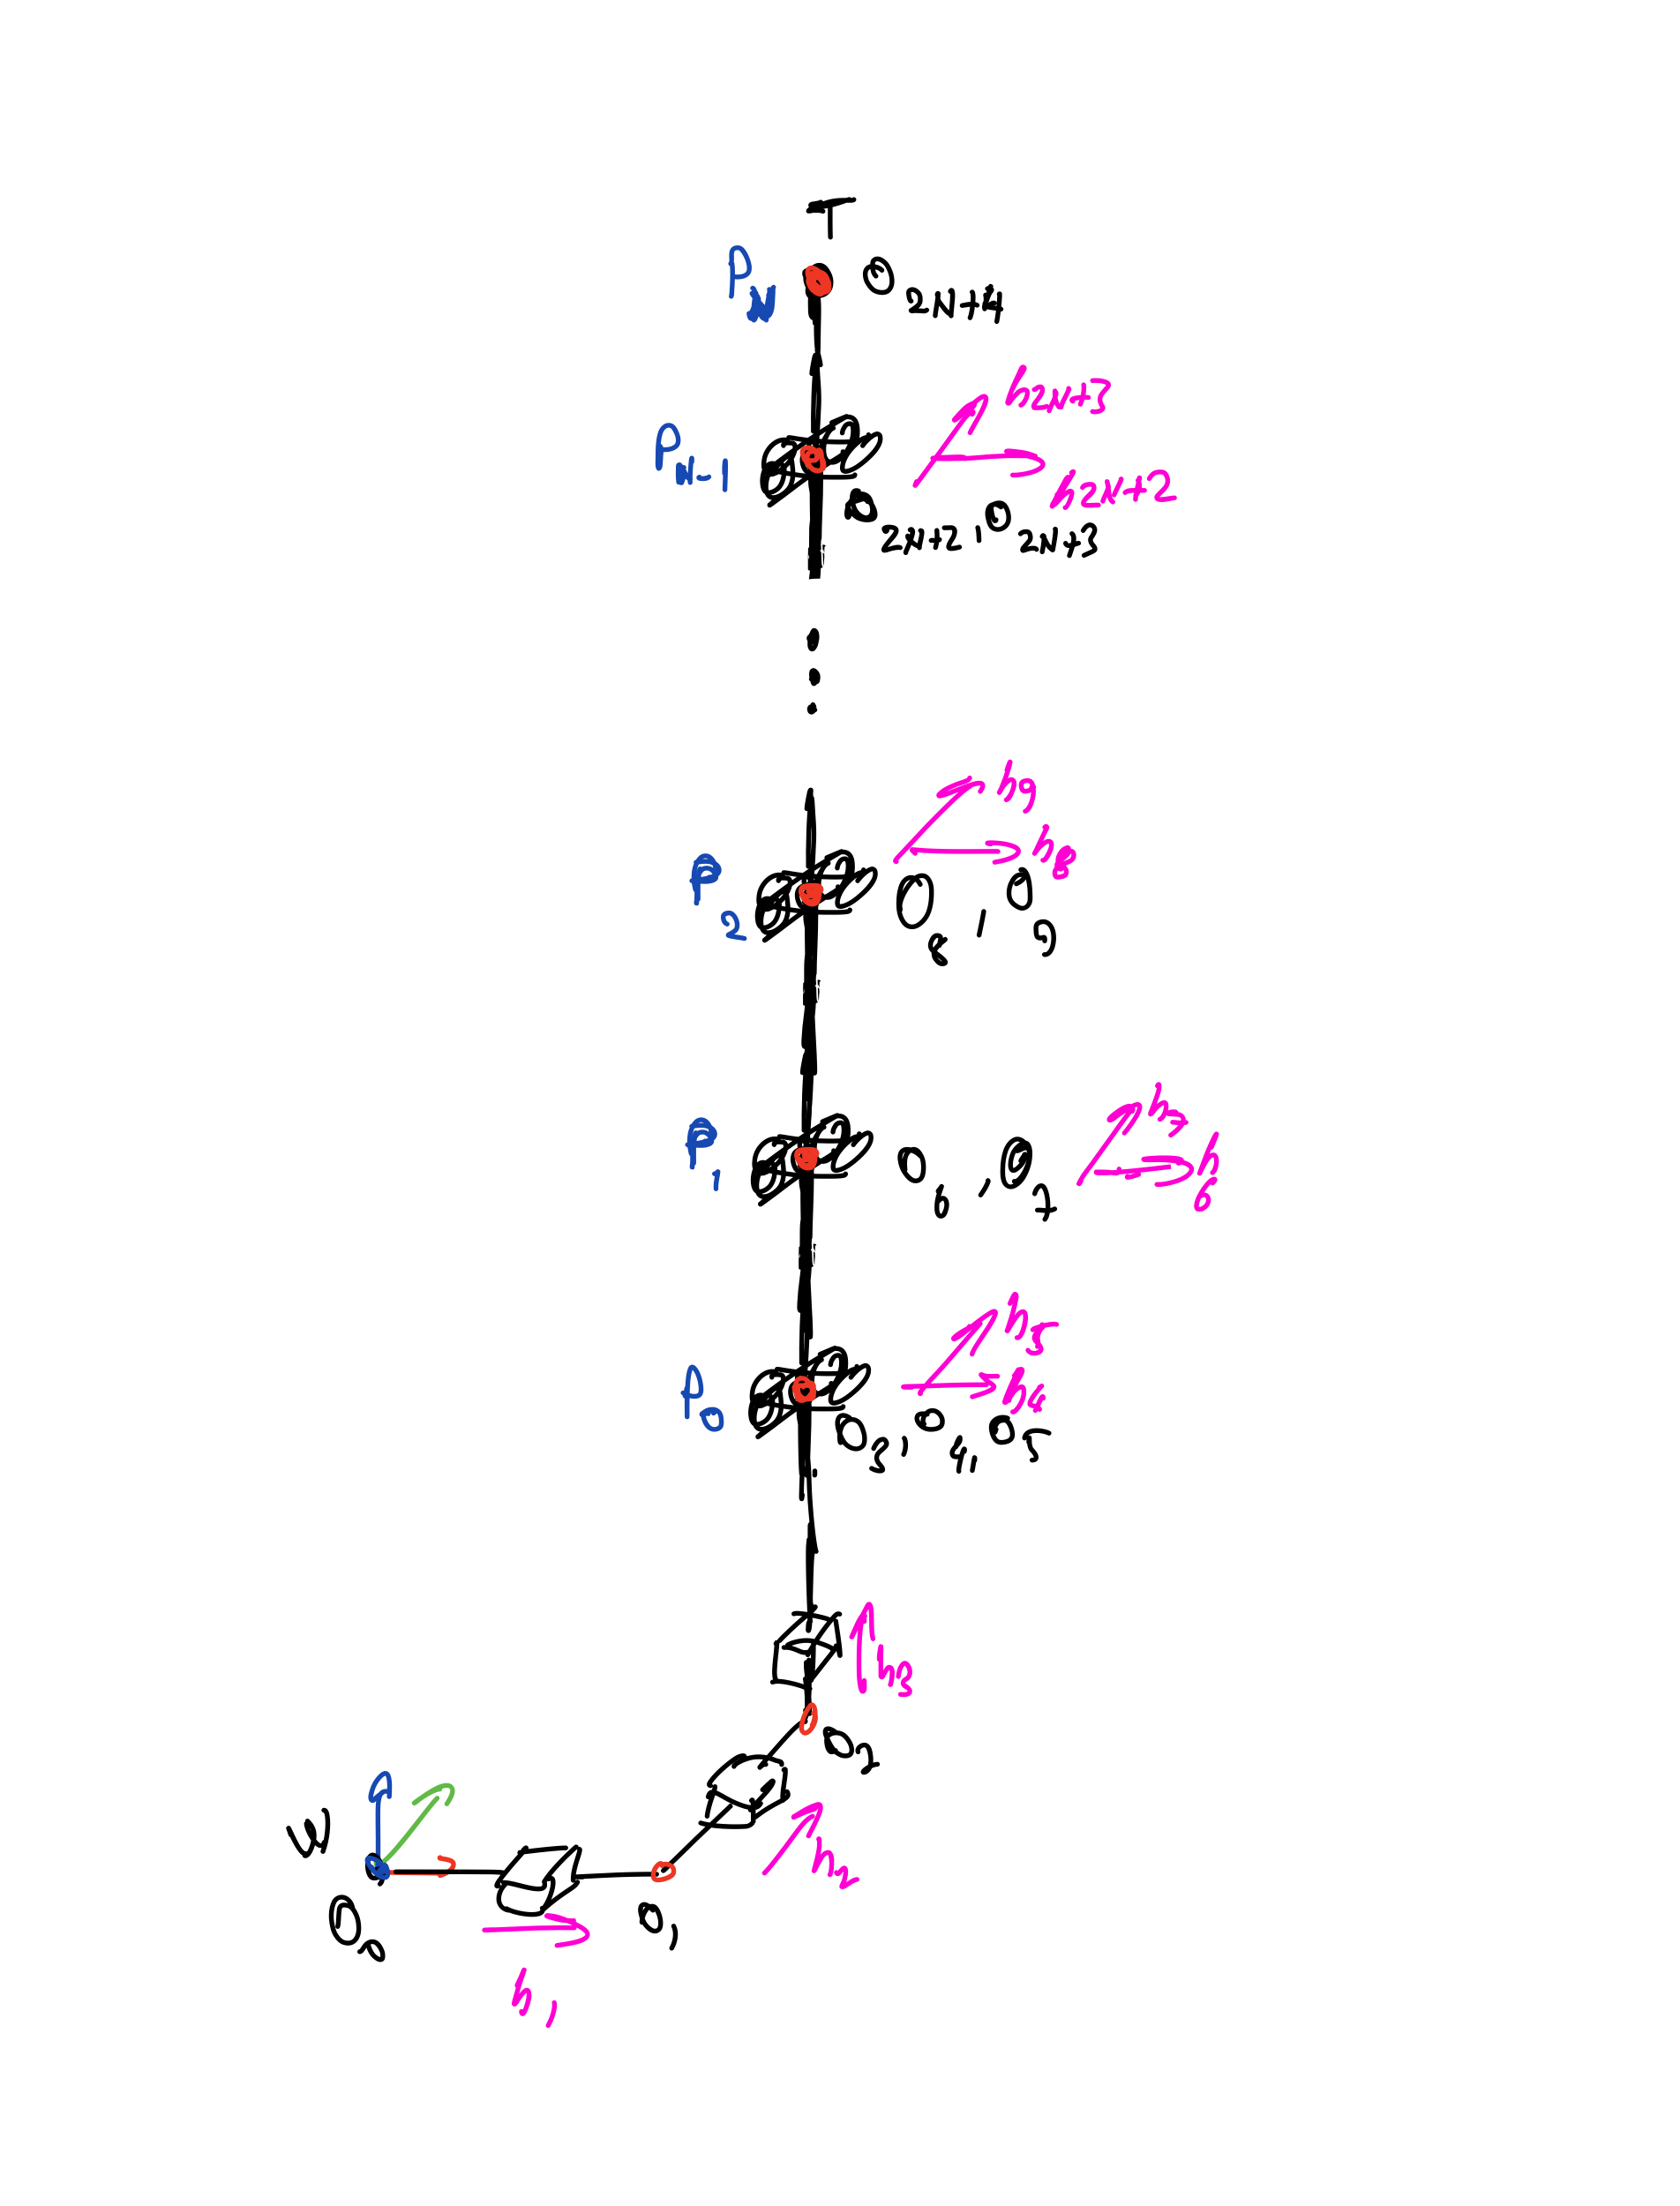 T
P_N O_{2N+4}
h_{2N+3}
P_{N-1} h_{2N+2}
O_{2N+2}, O_{2N+3}
h_9
h_8
P_2 O_8, O_9
h_7
P_1 O_6, O_7 h_6
h_5
P_0 h_4
O_3, O_4, O_5
h_3
O_2
W
h_2
O_0 O_1
h_1